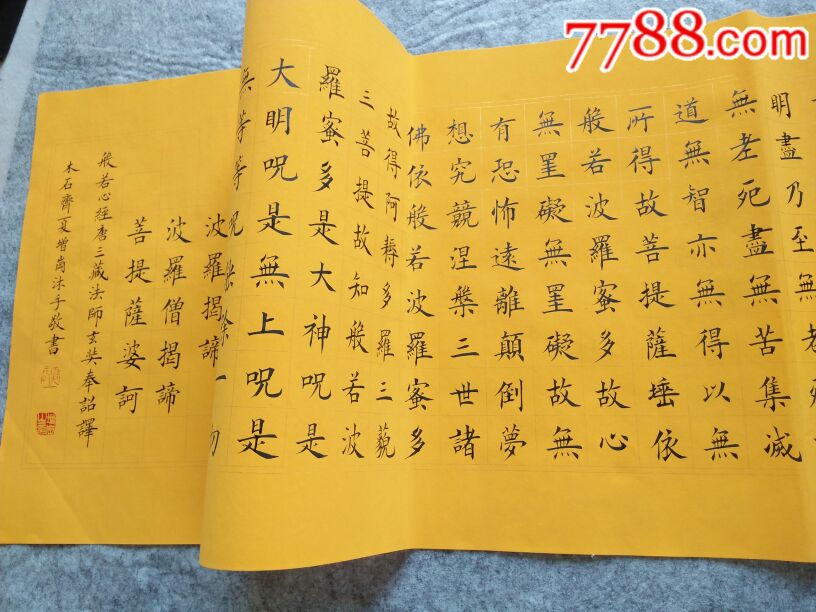 7788.com
明盡乃至無老死
無老死盡無苦集滅
道無智亦無得以無
所得故菩提薩埵依
般若波羅蜜多故心
無罣礙無罣礙故無
有恐怖遠離顛倒夢
想究競涅槃三世諸
佛依般若波羅蜜多
故得阿耨多羅三藐
三菩提故知般若波
羅蜜多是大神呪是
大明呪是無上呪是
無等等呪
波羅揭諦
波羅僧揭諦
菩提薩婆訶
般若心經唐三藏法師玄奘奉詔譯
木石齊夏增崗沐手敬書